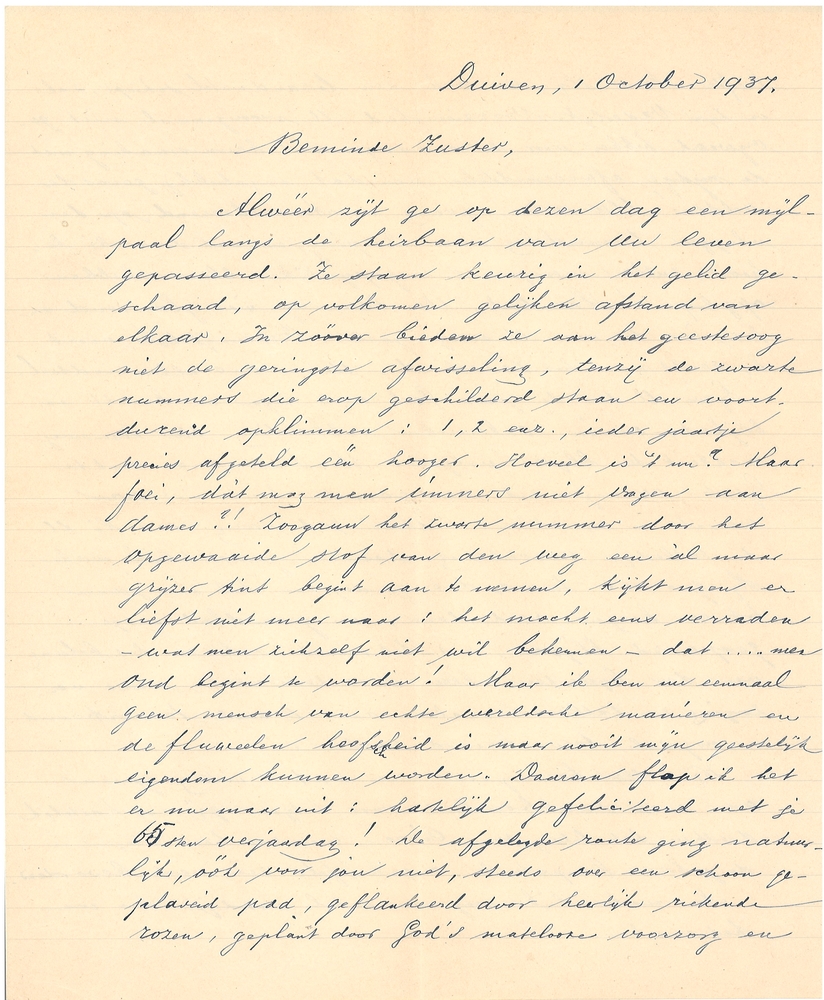 Duiven, 1 October 1937.
Beminde Zuster,
Alwéér zijt ge op dezen dag een mijl-
paal langs de heirbaan van Uw leven
gepasseerd. Ze staan keurig in het gelid ge-
schaard, op volkomen gelijken afstand van
elkaar. In zóóver bieden ze aan het geestesoog
niet de geringste afwisseling, tenzij de zwarte
nummers die erop geschilderd staan en voort-
durend opklimmen: 1, 2 enz., ieder jaartje
precies afgeteld één hooger. Hoeveel is 't nu? Maar
foei, dàt mag men immers niet vragen aan
dames?! Zoogauw het zwarte nummer door het
opgewaaide stof van den weg een àl maar
grijzer tint begint aan te nemen, kijkt men er
liefst niet meer naar: het mocht eens verraden
- wat men zichzelf niet wil bekennen - dat ..... men
oud begint te worden! Maar ik ben nu eenmaal
geen mensch van echte wereldsche manieren en
de fluweelen hoofschheid is maar nooit mijn geestelijk
eigendom kunnen worden. Daarom flap ik het
er nu maar uit: hartelijk gefeliciteerd met je
65sten verjaardag! De afgelegde route ging natuur-
lijk, óók voor jou niet, steeds over een schoon ge-
plaveid pad, geflankeerd door heerlijk riekende
rozen, geplant door God's matelooze voorzorg en